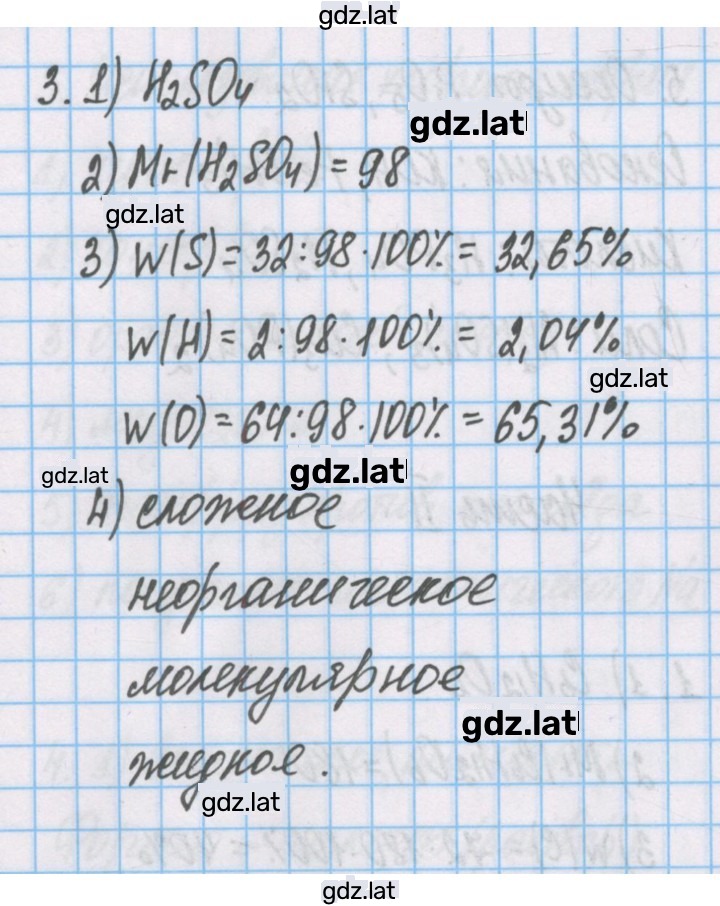 gdz.lat
3. 1) H₂SO₄
gdz.lat
2) Mr(H₂SO₄) = 98
gdz.lat
3) W(S) = 32:98·100% = 32,65%
W(H) = 2:98·100% = 2,04%
gdz.lat
W(O) = 64:98·100% = 65,31%
gdz.lat
gdz.lat
4) сложное
неорганическое
молекулярное
gdz.lat
жидкое.
gdz.lat
gdz.lat